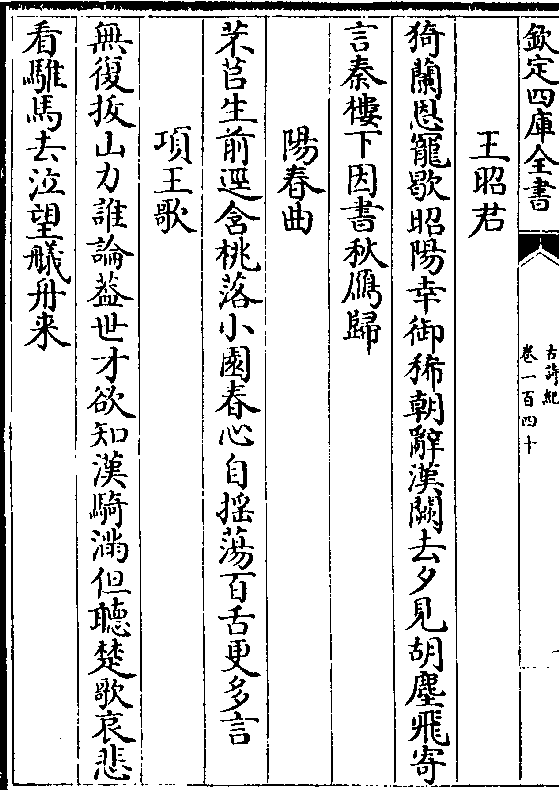 欽定四庫全書
古詩紀
卷一百四十
王昭君
猗蘭恩寵歇昭陽幸御稀朝辭漢闕去夕見胡塵飛寄
言秦樓下因書秋鴈歸
陽春曲
芣苢生前逕含桃落小園春心自搖蕩百舌更多言
項王歌
無復拔山力誰論葢世才欲知漢騎滿但聽楚歌哀悲
看騅馬去泣望艤舟来